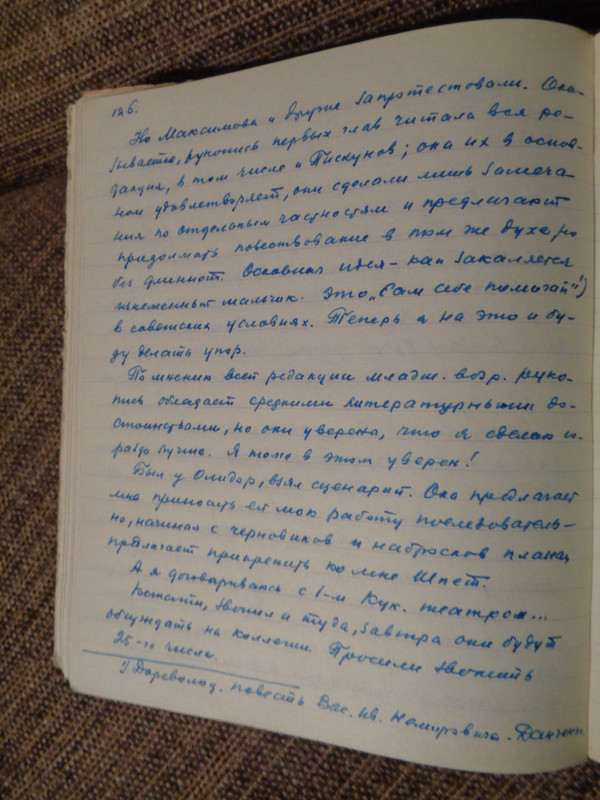 126.
Но Максимова и другие запротестовали. Ока-
зывается, рукопись первых глав читала вся ре-
дакция, в том числе и Пискунов; она их в основ-
ном удовлетворяет, они сделали лишь замеча-
ния по отдельным частностям и предлагают
продолжать повествование в том же духе, но
без длиннот. Основная идея - как закаляется
изнеженный мальчик. Это „Сам себе помогай"¹)
в советских условиях. Теперь я на это и бу-
ду делать упор.
По мнению всей редакции младш. возр. руко-
пись обладает средними литературными до-
стоинствами, но они уверены, что я сделаю го-
раздо лучше. Я тоже в этом уверен!
Был у Олидор, взял сценарий. Она предлагает
мне приносить ей мою работу последователь-
но, начиная с черновиков и набросков плана,
предлагает прикрепить ко мне Шпет.
А я договариваюсь с 1-м Кук. театром...
Кстати, звонил и туда, завтра они будут
обсуждать на коллегии. Просили звонить
25-го числа.
¹) Дореволюц. повесть Вас. Ив. Немировича-Данченко.